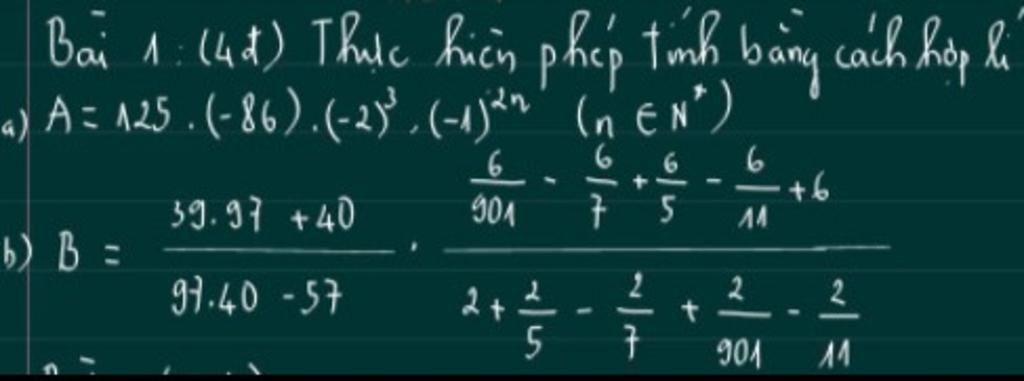 Bài 1: (4đ) Thực hiện phép tính bằng cách hợp lí
a) A = 125 . (-86) . (-2)³ . (-1)²ⁿ (n ∈ N*)
b) B = (39.97 + 40)/(97.40 - 57) . (6/901 - 6/7 + 6/5 - 6/11 + 6)/(2 + 2/5 - 2/7 + 2/901 - 2/11)